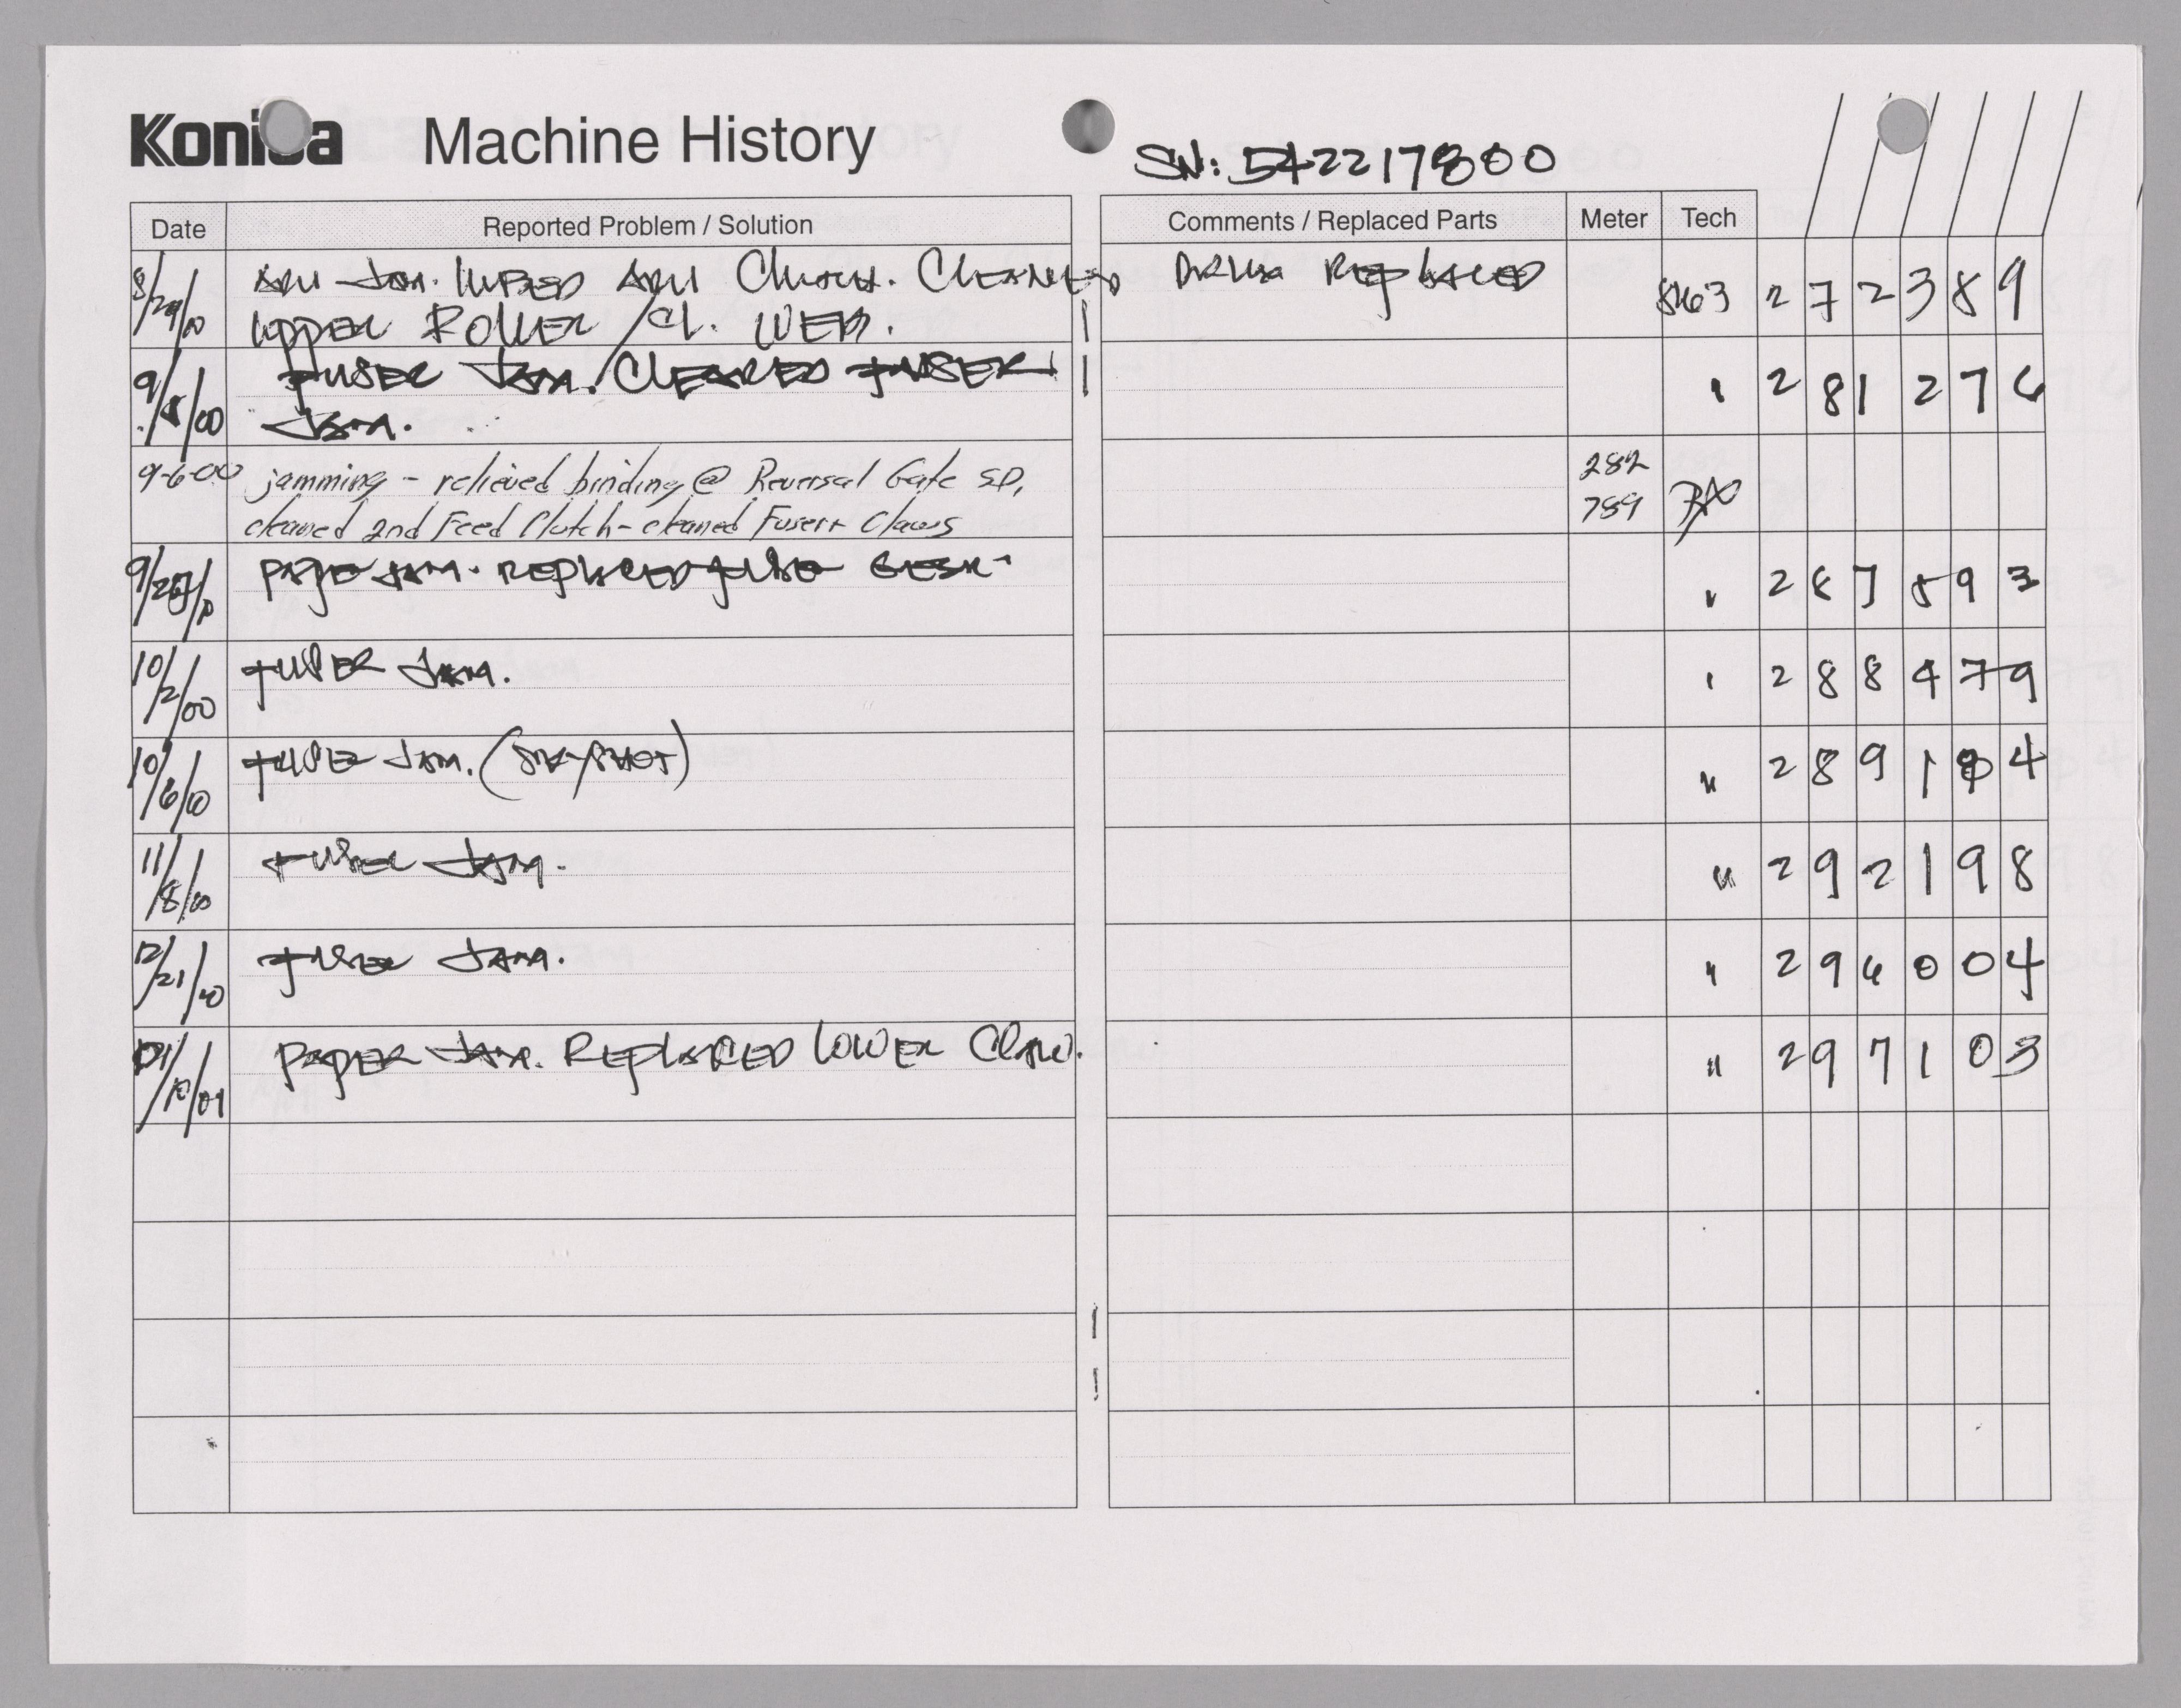 Konica Machine History
SN: 542217800
Date Reported Problem / Solution Comments / Replaced Parts Meter Tech
8/29/00 ADU JAM. LUBED ADU CLUTCH. CLEANED DRUM REPLACED 8463 272389
UPPER ROLLER / CL. WEB.
9/5/00 FUSER JAM. CLEARED FUSER " 281276
JAM.
9-6-00 jamming - relieved binding @ Reversal Gate SD, 282
cleaned 2nd Feed Clutch - cleaned Fuser Claws 789
PAPER JAM. REPLACED FUSE GEAR " 287893
10/2/00 FUSER JAM. " 288479
10/6/00 FUSER JAM. " 2891 4
11/8/00 FUSER JAM. " 292198
12/21/00 FUSER JAM. " 296004
01/12/01 PAPER JAM. REPLACED LOWER CLAW. " 297103